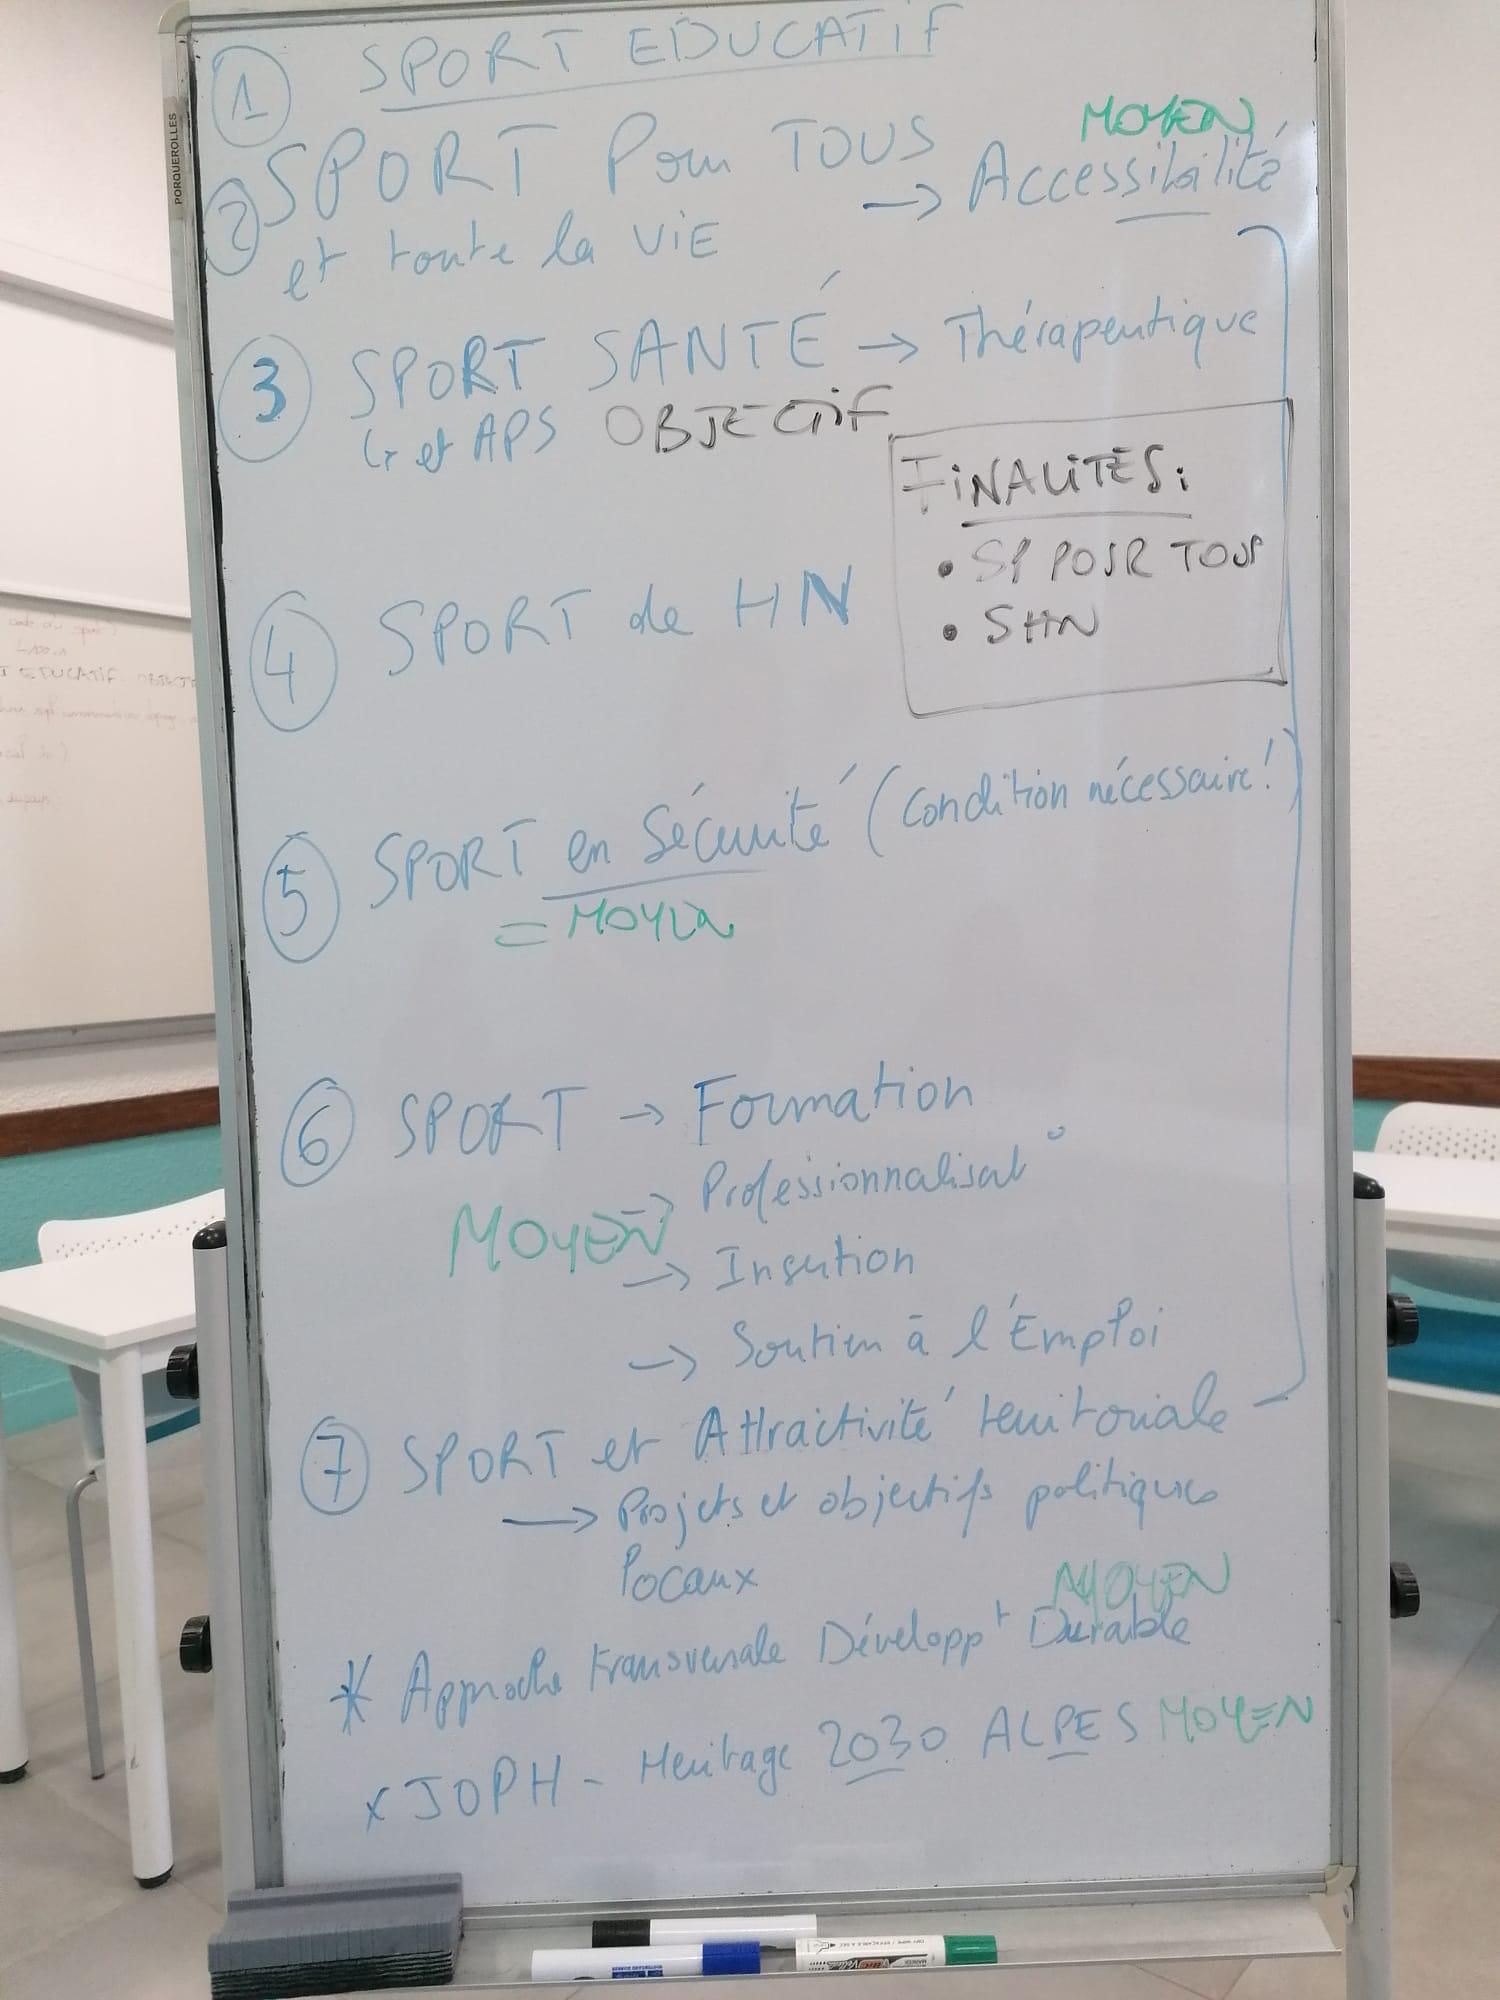 ① SPORT EDUCATIF
MOYEN
② SPORT Pour TOUS → Accessibilité
et toute la ViE
③ SPORT SANTÉ → Thérapeutique
↳ et APS OBJECTIF
FiNALiTÉS:
• SP POUR TOUS
• SHN
④ SPORT de HN
⑤ SPORT en Sécurité (Condition nécessaire!
= MOYEN
⑥ SPORT → Formation
→ Professionnalisat°
MOYEN
→ Insertion
→ Soutien à l'Emploi
⑦ SPORT et Attractivité territoriale
→ Projets et objectifs politiques
locaux
MOYEN
* Approche transversale Développt Durable
x JOPH - Heritage 2030 ALPES MOYEN
PORQUEROLLES
EDUCATIF